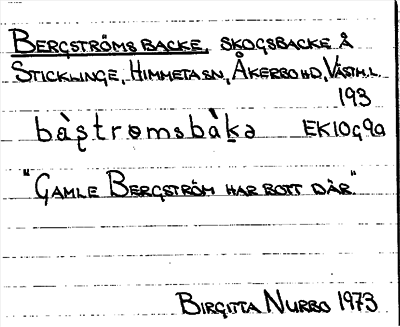 BERGSTRÖMS BACKE, SKOGSBACKE Å
STICKLINGE, HIMMETA SN, ÅKERBO HD, VÄSTM.L.
193
bàʂtrɵmsbàkə EK10G9a
"GAMLE BERGSTRÖM HAR BOTT DÄR."
BIRGITTA NURBO 1973